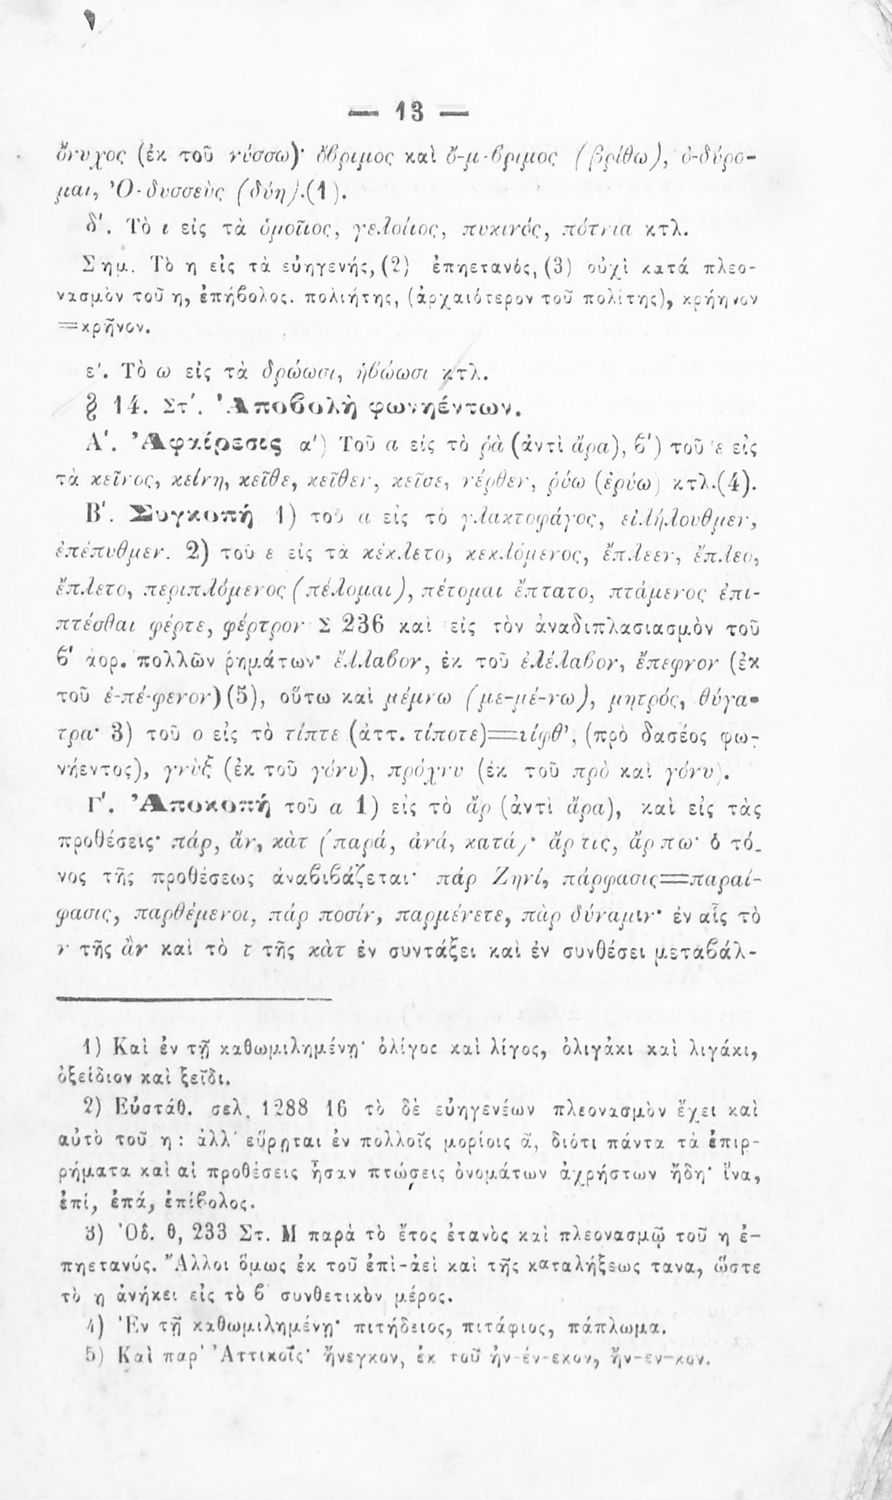 — 13 —
ὄνυχος (ἐκ τοῦ νύσσω)· ὄβριμος καὶ ὄ-μ-βριμος (βρίθω), ὀ-δύρο-
μαι, Ὀ-δυσσεὺς (δύη).(1).
δ'. Τὸ ι εἰς τὰ ὁμοῖιος, γελοίιος, πυκινός, πότνια κτλ.
Σημ. Τὸ η εἰς τὰ εὐηγενής, (2) ἐπηετανός, (3) οὐχὶ κατά πλεο-
νασμὸν τοῦ η, ἐπήβολος. πολιήτης, (ἀρχαιότερον τοῦ πολίτης), κρήηνον
=κρῆνον.
ε'. Τὸ ω εἰς τὰ δρώωσι, ἡβώωσι κτλ.
§ 14. Στ'. Ἀποβολὴ φωνηέντων.
Α'. Ἀφαίρεσις α') Τοῦ α εἰς τὸ ῥὰ (ἀντὶ ἄρα), β') τοῦ ε εἰς
τὰ κεῖνος, κείνη, κεῖθε, κεῖθεν, κεῖσε, νέρθεν, ῥύω (ἐρύω) κτλ.(4).
Β'. Συγκοπή 1) τοῦ α εἰς τὸ γλακτοφάγος, εἰλήλουθμεν,
ἐπέπυθμεν. 2) τοῦ ε εἰς τὰ κέκλετο, κεκλόμενος, ἔπλεεν, ἔπλεο,
ἔπλετο, περιπλόμενος (πέλομαι), πέτομαι ἔπτατο, πτάμενος ἐπι-
πτέσθαι φέρτε, φέρτρον Σ 236 καὶ εἰς τὸν ἀναδιπλασιασμὸν τοῦ
β' ἀορ. πολλῶν ῥημάτων· ἔλλαβον, ἐκ τοῦ ἐλέλαβον, ἔπεφνον (ἐκ
τοῦ ἐ-πέ-φενον) (5), οὕτω καὶ μέμνω (με-μέ-νω), μητρός, θύγα-
τρα· 3) τοῦ ο εἰς τὸ τίπτε (ἀττ. τίποτε)=τίφθ', (πρὸ δασέος φω-
νήεντος), γνὺξ (ἐκ τοῦ γόνυ), πρόχνυ (ἐκ τοῦ πρὸ καὶ γόνυ).
Γ'. Ἀποκοπή τοῦ α 1) εἰς τὸ ἄρ (ἀντὶ ἄρα), καὶ εἰς τὰς
προθέσεις· πάρ, ἄν, κὰτ (παρά, ἀνά, κατά)· ἄρ τις, ἄρ πω· ὁ τό-
νος τῆς προθέσεως ἀναβιβάζεται· πάρ Ζηνί, πάρφασις=παραί-
φασις, παρθέμενοι, πάρ ποσίν, παρμένετε, πὰρ δύναμιν· ἐν αἷς τὸ
ν τῆς ἂν καὶ τὸ τ τῆς κὰτ ἐν συντάξει καὶ ἐν συνθέσει μεταβάλ-
1) Καὶ ἐν τῇ καθωμιλημένῃ· ὀλίγος καὶ λίγος, ὀλιγάκι καὶ λιγάκι,
ὀξείδιον καὶ ξεῖδι.
2) Εὐστάθ. σελ. 1288 16 τὸ δὲ εὐηγενέων πλεονασμὸν ἔχει καὶ
αὐτὸ τοῦ η : ἀλλ' εὕρηται ἐν πολλοῖς μορίοις ᾶ, διότι πάντα τὰ ἐπιρ-
ρήματα καὶ αἱ προθέσεις ἦσαν πτώσεις ὀνομάτων ἀχρήστων ἤδη· ἵνα,
ἐπί, ἐπά, ἐπίβολος.
3) Ὀδ. θ, 233 Στ. Μ παρὰ τὸ ἔτος ἐτανὸς καὶ πλεονασμῷ τοῦ η ἐ-
πηετανύς. Ἄλλοι ὅμως ἐκ τοῦ ἐπὶ-ἀεὶ καὶ τῆς καταλήξεως τανα, ὥστε
τὸ η ἀνήκει εἰς τὸ β συνθετικὸν μέρος.
4) Ἐν τῇ καθωμιλημένῃ· πιτήδειος, πιτάφιος, πάπλωμα.
5) Καὶ παρ' Ἀττικοῖς· ἤνεγκον, ἐκ τοῦ ἠν-έν-εκον, ἤν-εν-κον.